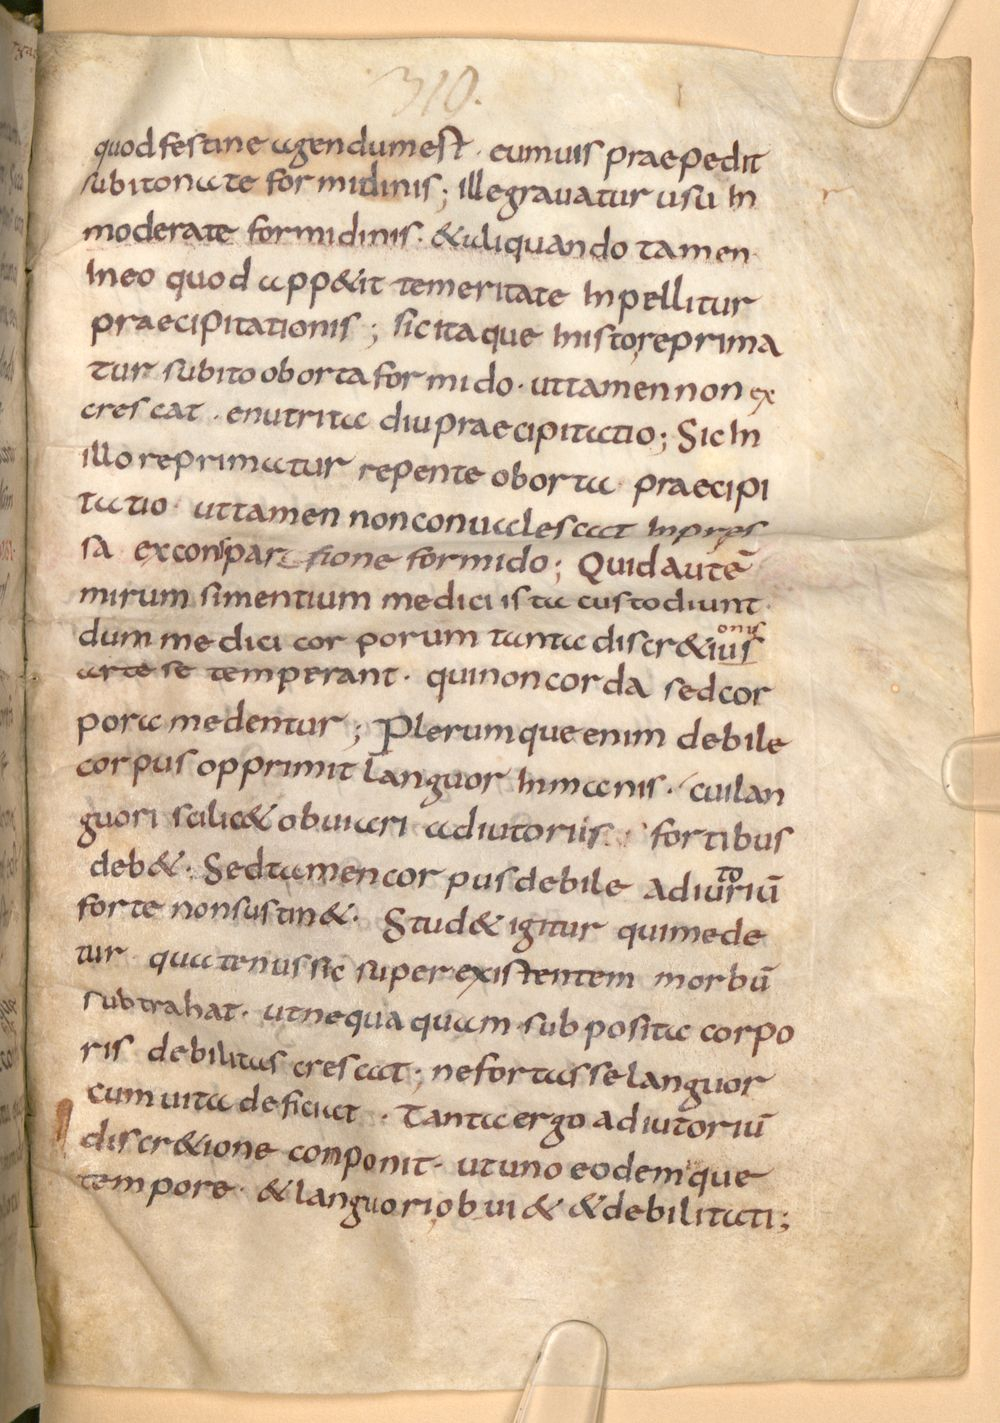 310.
quod festine agendum est · cum uis praepedit
subito nate formidinis ; ille grauatur usu in
moderate formidinis · & aliquando tamen
in eo quod app&it temeritate inpellitur
praecipitationis ; sic itaque in isto reprima
tur subito oborta formido · ut tamen non ex
crescat · enutrita diu praecipitatio ; Sic in
illo reprimatur repente oborta praecipi
tatio · ut tamen non conualescat inpres
sa ex conspar fione formido ; Quid autē
mirum si mentium medici ista custodiunt ·
dum medici corporum tanta discr&ius
onis
arte se temperant · qui non corda sed cor
pora medentur ; Plerumque enim debile
corpus opprimit languor inmanis · cui lan
guori scilic& obuiari adiutoriis · fortibus
deb& · Sed tamen corpus debile adiuriū
to
forte non sustin& · Stud& igitur qui mede
tur quatenus sic superexistentem morbū
subtrahat · ut nequaquam subposita corpo
ris debilitas crescat ; ne fortasse languor
cum uita deficiat · Tanta ergo adiutoriū
discr&ione conponit · ut uno eodemque
tempore · & languori obui& & debilitati ;